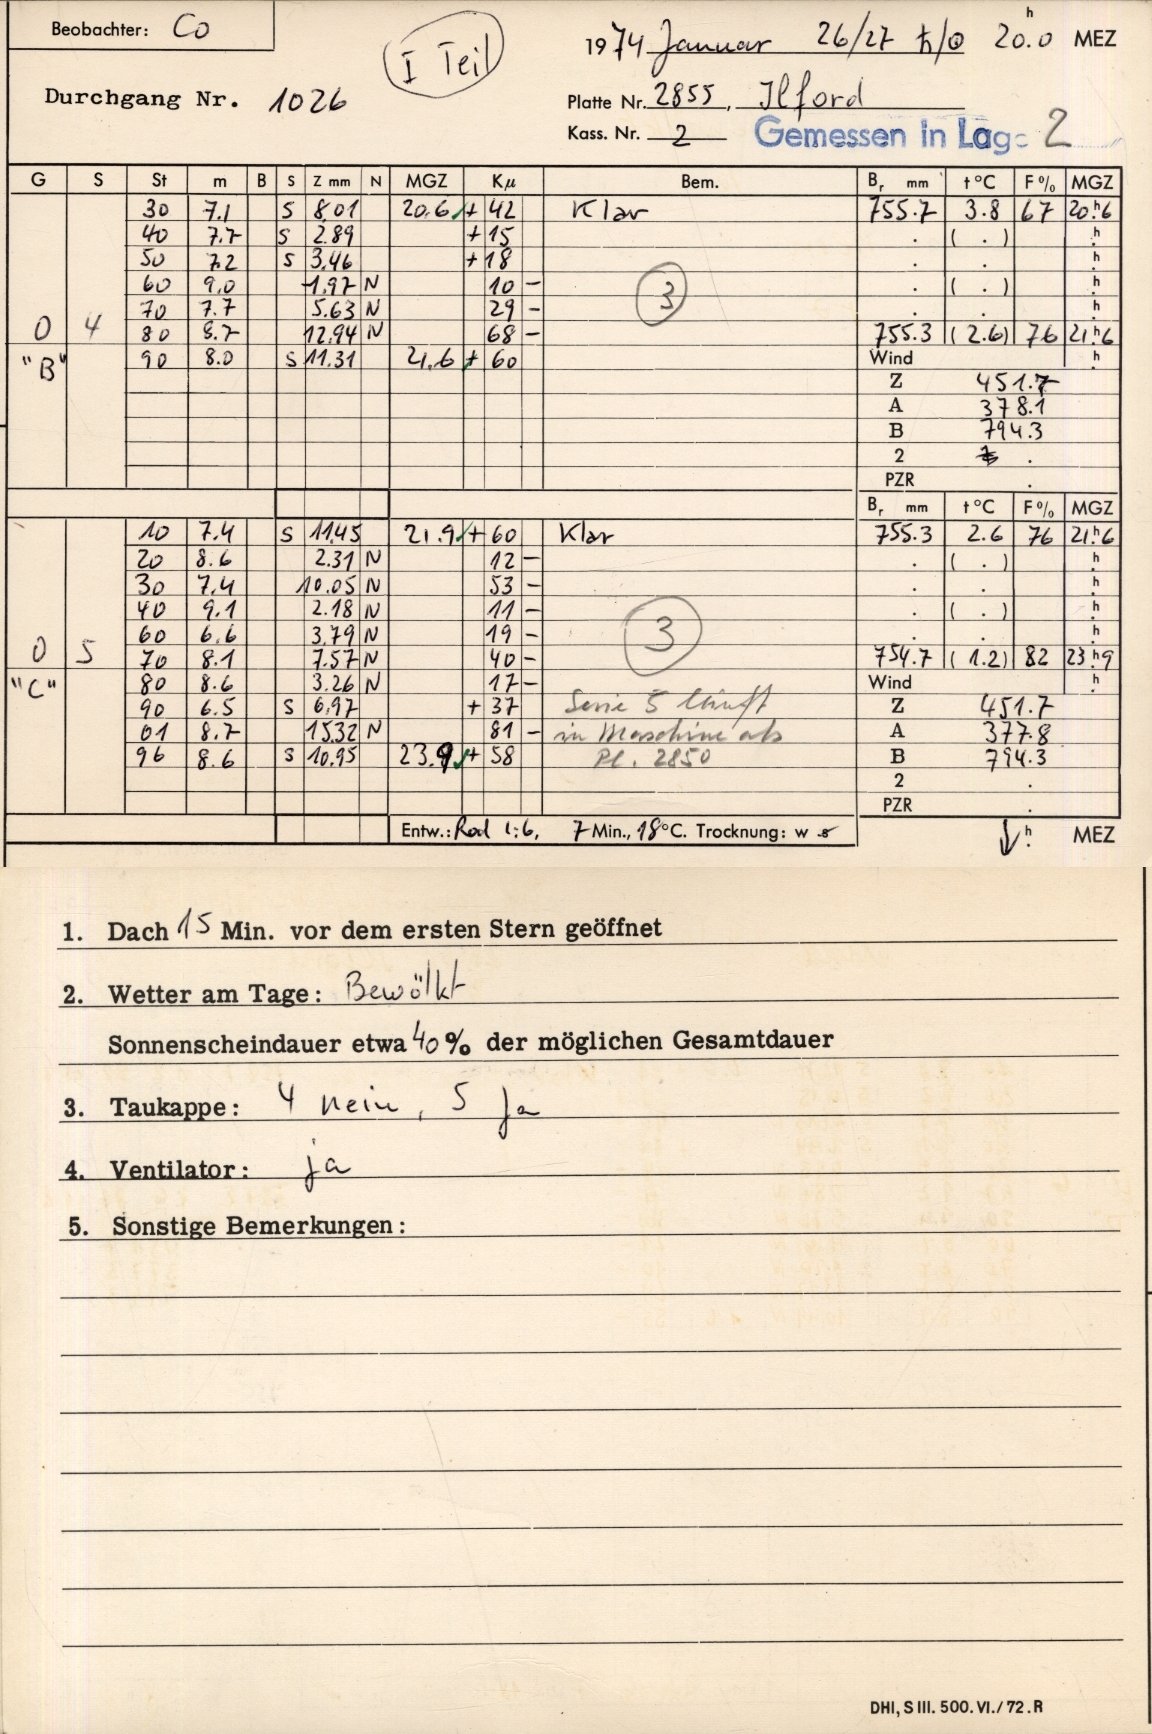 Beobachter: Co
I Teil
1974 Januar 26/27 ♄/☉ 20.0 h MEZ
Durchgang Nr. 1026
Platte Nr. 2855, Ilford
Kass. Nr. 2 Gemessen in Lage 2
G S St m B S Z mm N MGZ Kμ Bem. Br mm t °C F% MGZ
30 7.1 S 8.01 20.6 + 42 Klar 755.7 3.8 67 20.h6
40 7.7 S 2.89 + 15 . ( . ) h.
50 7.2 S 3.46 + 18 . . h.
60 9.0 1.97 N 10 - 3 . ( . ) h.
70 7.7 5.63 N 29 - . . h.
0 4 80 8.7 12.94 N 68 - 755.3 (2.6) 76 21.h6
"B" 90 8.0 S 11.31 21.6 + 60 Wind h.
Z 451.7
A 378.1
B 794.3
2 .
PZR .
Br mm t °C F% MGZ
10 7.4 S 11.45 21.9 + 60 Klar 755.3 2.6 76 21.h6
20 8.6 2.31 N 12 - . ( . ) h.
30 7.4 10.05 N 53 - . . h.
40 9.1 2.18 N 11 - . ( . ) h.
60 6.6 3.79 N 19 - 3 . . h.
0 5 70 8.1 7.57 N 40 - 754.7 (1.2) 82 23.h9
"C" 80 8.6 3.26 N 17 - Wind h.
90 6.5 S 6.97 + 37 Serie 5 läuft Z 451.7
01 8.7 15.32 N 81 - in Maschine als A 377.8
96 8.6 S 10.95 23.9 + 58 Pl. 2850 B 794.3
2 .
PZR .
Entw.: Rod 1:6, 7 Min., 18°C. Trocknung: w s ↓ h. MEZ
1. Dach 15 Min. vor dem ersten Stern geöffnet
2. Wetter am Tage: Bewölkt
Sonnenscheindauer etwa 40% der möglichen Gesamtdauer
3. Taukappe: 4 nein, 5 ja
4. Ventilator: ja
5. Sonstige Bemerkungen:
DHI, S III. 500. VI./72. R